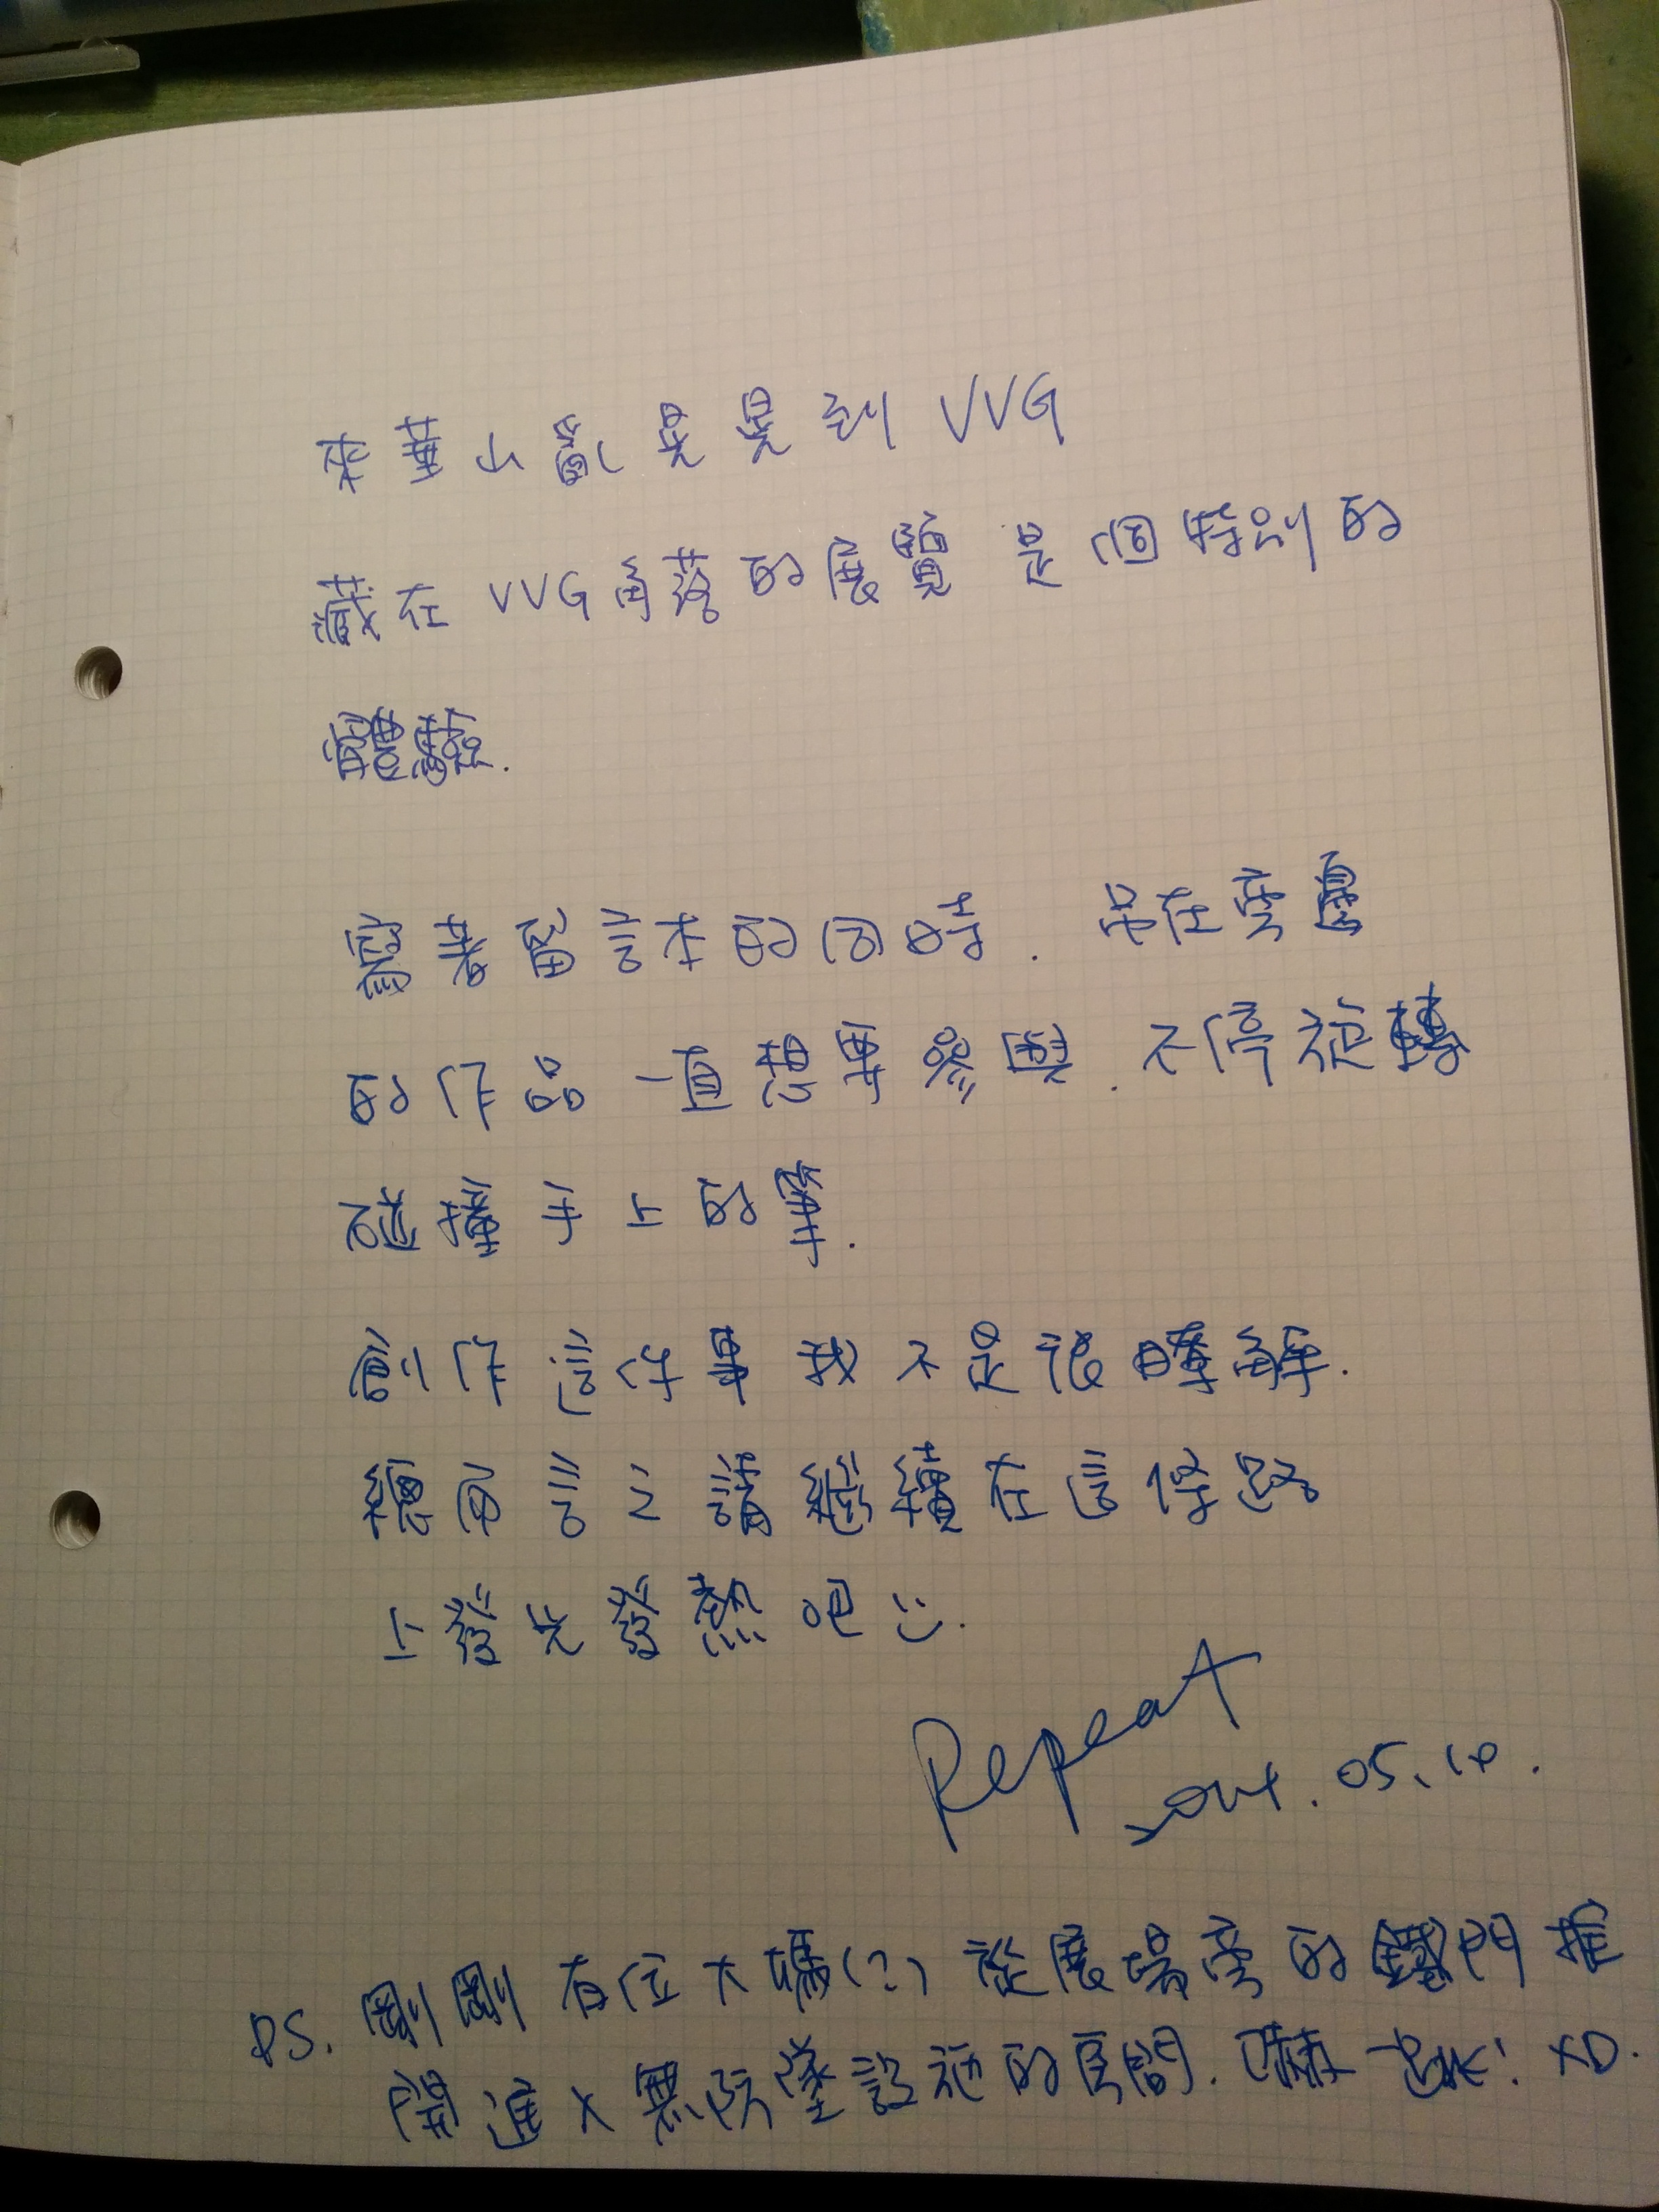 來華山亂晃晃到 VVG
藏在 VVG 角落的展覽是個特別的
體驗.
寫裝配計本的同時. 吊在旁邊
的作品一直想要參與. 不停旋轉
碰撞手上的筆.
創作這件事我不是很瞭解.
總而言之請繼續在這條路
上發光發熱吧 :).
Repeat
2014.05.10.
PS. 剛剛有位大嬸(?)從展場旁的鐵門推
開進入無防墜設施的房間. 嚇一跳! XD.